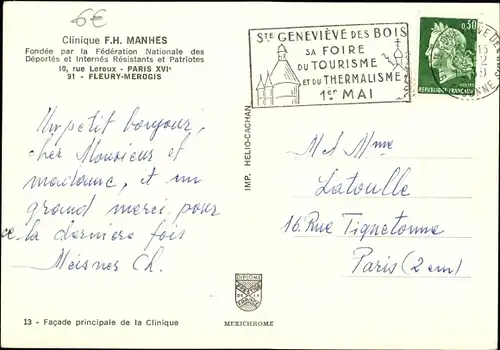 6€
Clinique F.H. MANHES
Fondée par la Fédération Nationale des
Déportés et Internés Résistants et Patriotes
10, rue Leroux - PARIS XVIe
91 - FLEURY-MEROGIS
STE GENEVIÈVE DES BOIS
SA FOIRE
DU TOURISME
ET DU THERMALISME
1er MAI
0,30
REPUBLIQUE FRANÇAISE
Un petit bonjour,
cher Monsieur et
madame, et un
grand merci pour
la derniere fois
Meisner Ch.
IMP. HELIO-CACHAN
M et Mme
Latoulle
16 Rue Tiquetonne
Paris (2em)
13 - Façade principale de la Clinique
DIPLOME
MEXICHROME